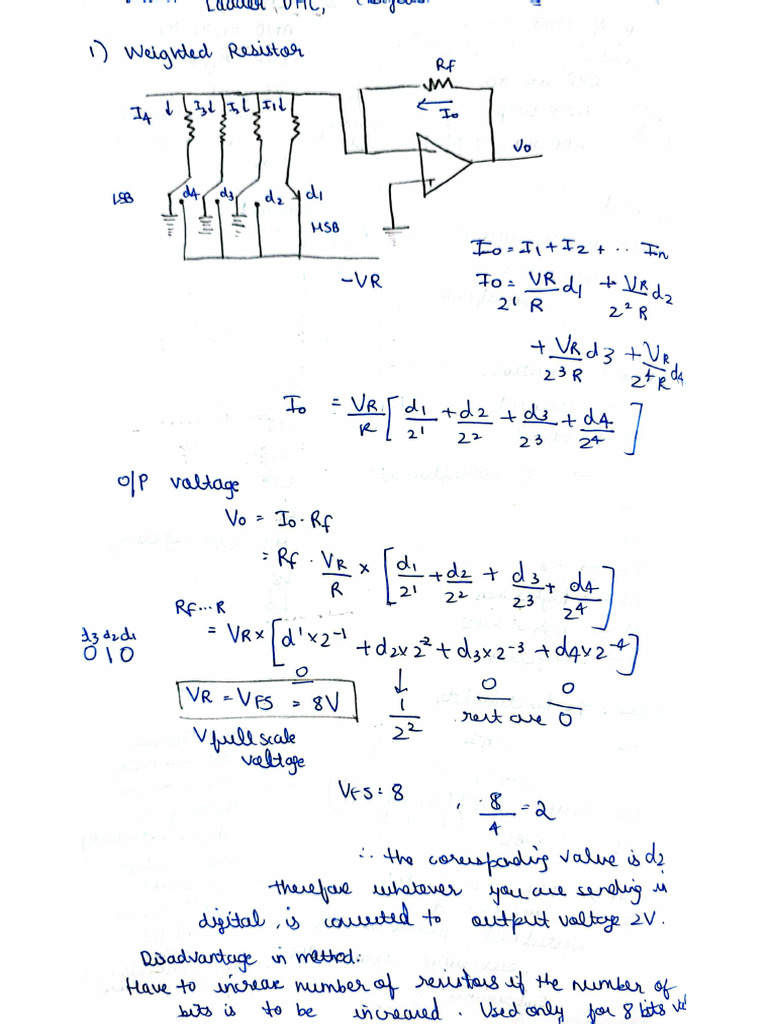 Ladder, DMC,
1) Weighted Resistor
Rf
I4 ↓ I3↓ I2↓ I1↓
← Io
Vo
LSB d4 d3 d2 d1
MSB
-VR
Io = I1 + I2 + .. In
Io = VR/2^1 R d1 + VR/2^2 R d2
+ VR/2^3 R d3 + VR/2^4 R d4
Io = VR/R [d1/2^1 + d2/2^2 + d3/2^3 + d4/2^4]
O/P voltage
Vo = Io · Rf
= Rf · VR/R × [d1/2^1 + d2/2^2 + d3/2^3 + d4/2^4]
Rf...R
= VR × [d'×2^-1 + d2×2^2 + d3×2^-3 + d4×2^-4]
d3 d2 d1
0 1 0
0 ↓ 0 0
VR = VFS = 8V
1/2^2 rest are 0
V full scale
voltage
VFS: 8 , 8/4 = 2
∴ the coresponding value is d2
therefore whatever you are sending in
digital, is converted to output voltage 2V.
Disadvantage in method:
Have to increase number of resistors if the number of
bits is to be increased. Used only for 8 bits